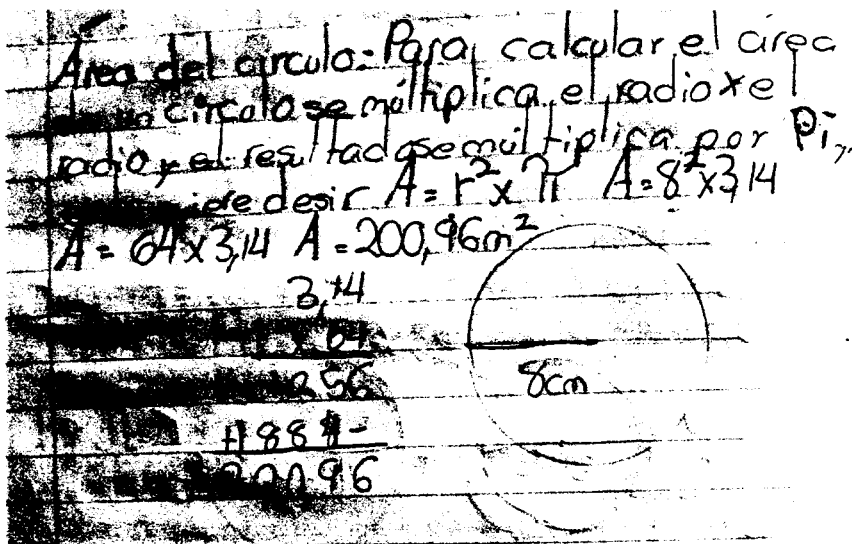 Área del circulo: Para calcular el área
de un circulo se multiplica el radio x el
radio y el resultado se multiplica por Pi,
desir A = r² x π A = 8² x 3,14
A = 64 x 3,14 A = 200,96m²
3,14
x 64
256
+1884-
20096
8cm